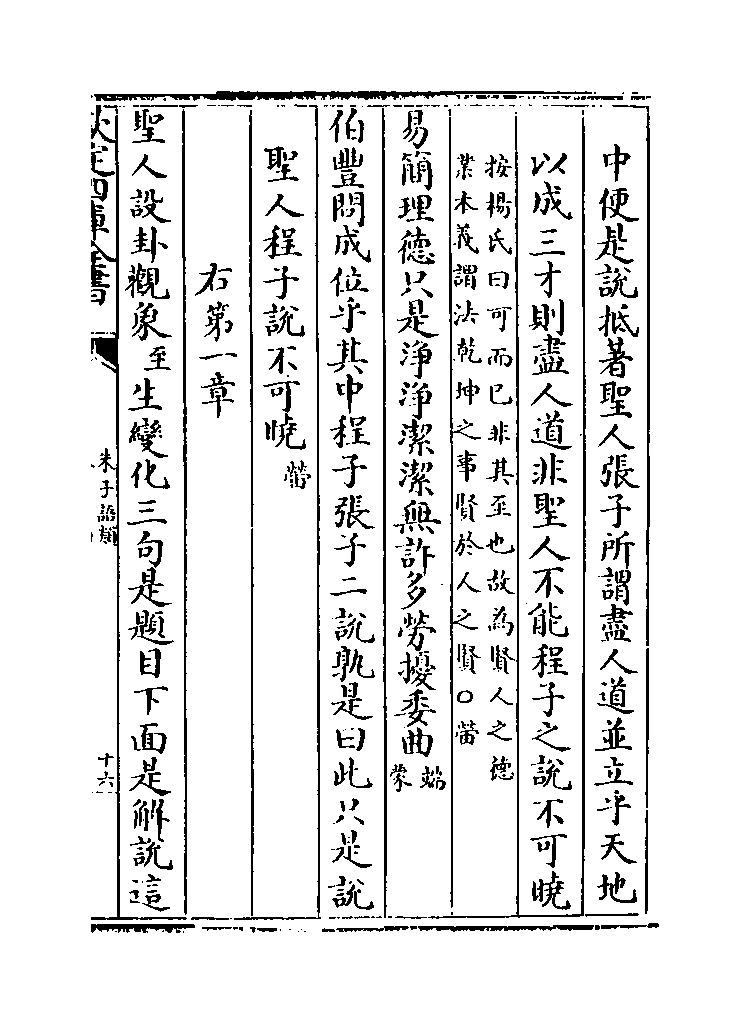 中便是說抵著聖人張子所謂盡人道並立乎天地
以成三才則盡人道非聖人不能程子之說不可曉
按楊氏曰可而已非其至也故為賢人之德
業本義謂法乾坤之事賢於人之賢○𥫃
易簡理徳只是淨淨潔潔無許多勞擾委曲端
蒙
伯豐問成位乎其中程子張子二說孰是曰此只是說
聖人程子說不可曉𥫃
右第一章
聖人設卦觀象至生變化三句是題目下面是解說這
欽定四庫全書
朱子語類
十六